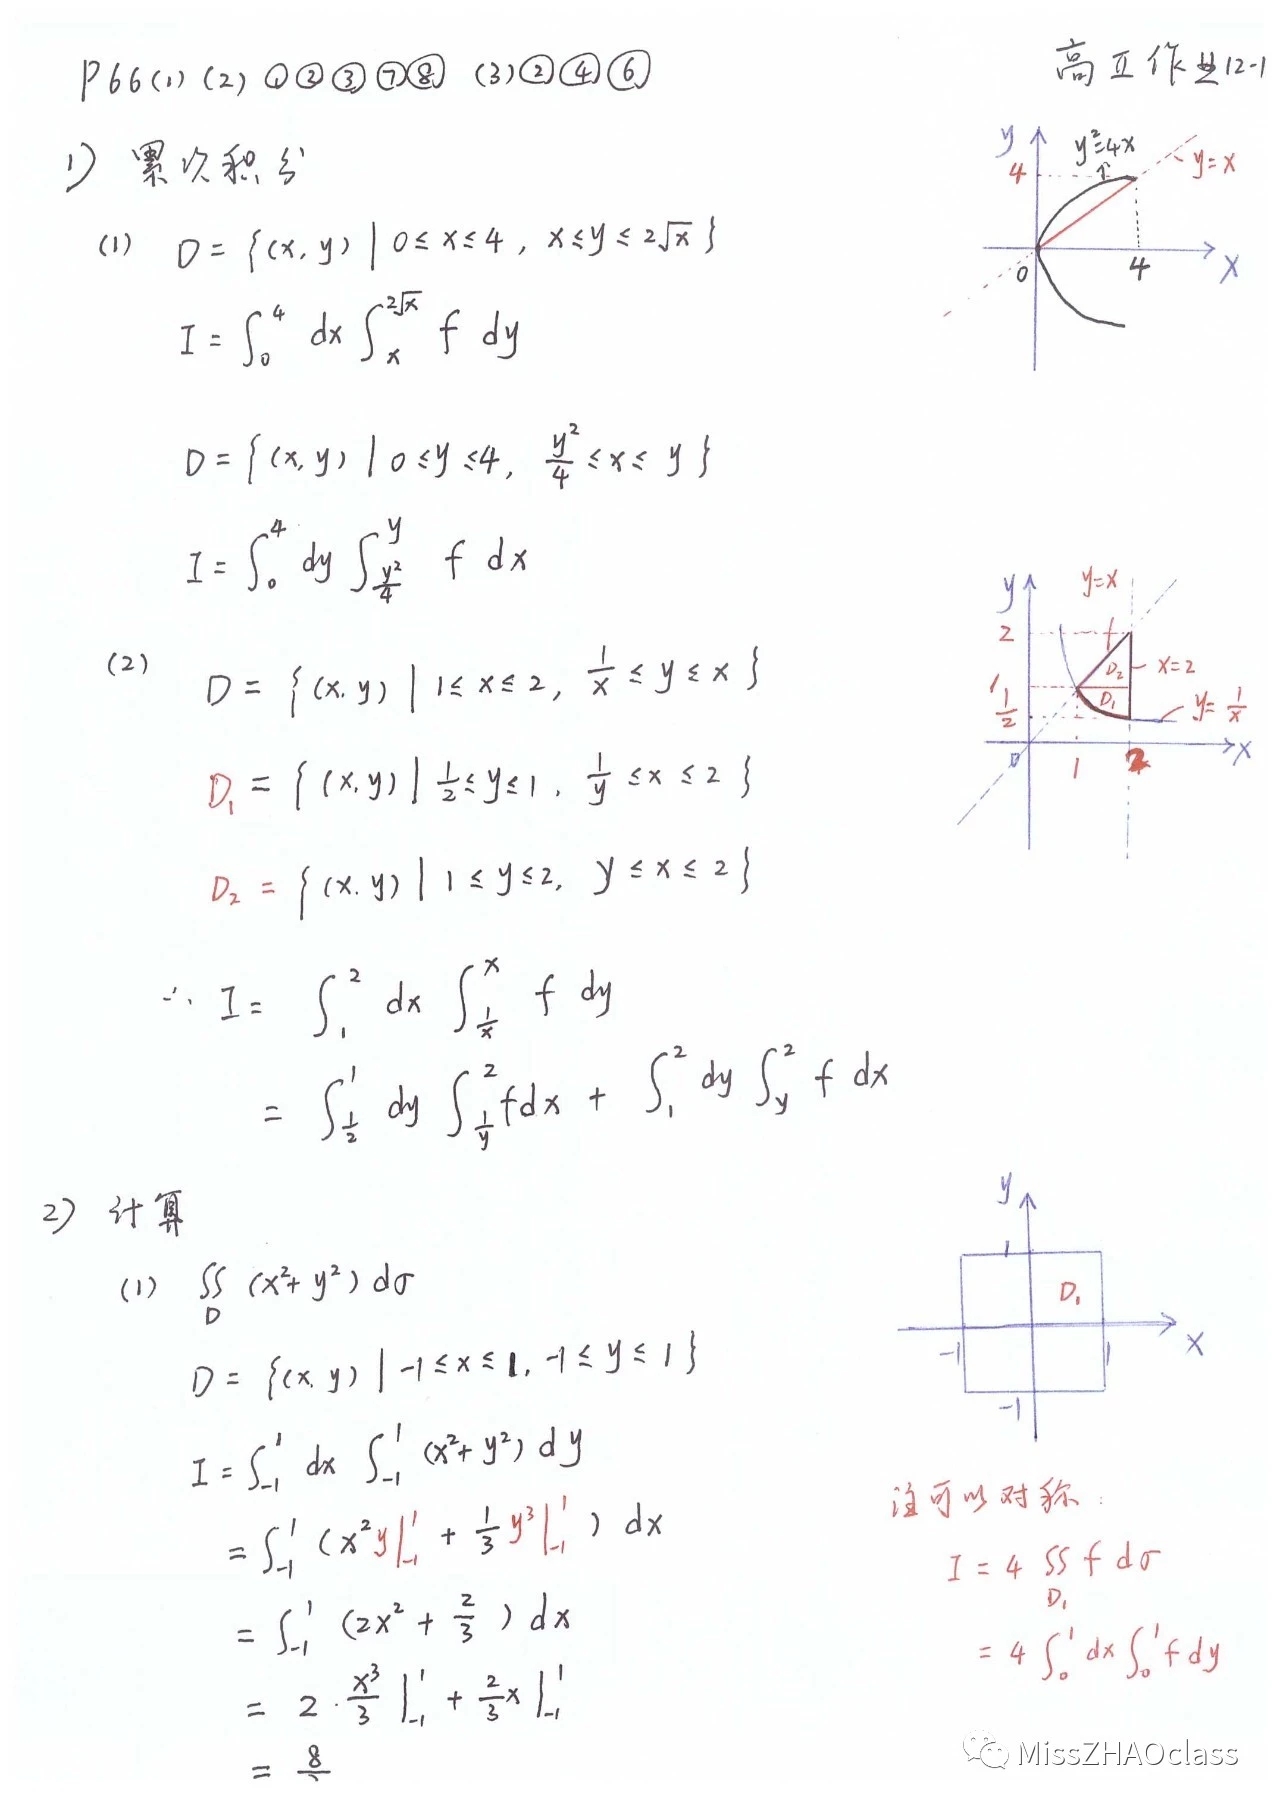 P66(1) (2) ①②③⑦⑧ (3)②④⑥
高工作业12-1
1) 累次积分
(1) D = {(x, y) | 0≤x≤4, x≤y≤2√x}
I = ∫₀⁴ dx ∫ₓ^(2√x) f dy
D = {(x, y) | 0≤y≤4, y²/4 ≤x≤ y}
I = ∫₀⁴ dy ∫_(y²/4)^y f dx
y
4
y²=4x
y=x
0
4
x
(2) D = {(x, y) | 1≤x≤2, 1/x ≤ y ≤ x}
D₁ = {(x, y) | 1/2 ≤y≤1, 1/y ≤x≤2}
D₂ = {(x, y) | 1≤y≤2, y≤x≤2}
∴ I = ∫₁² dx ∫_(1/x)^x f dy
= ∫_(1/2)^1 dy ∫_(1/y)^2 f dx + ∫₁² dy ∫_y^2 f dx
y
y=x
2
D₂
x=2
1
D₁
1/2
y=1/x
0
1
2
x
2) 计算
(1) ∬_D (x²+y²) dσ
D = {(x, y) | -1≤x≤1, -1≤y≤1}
I = ∫₋₁¹ dx ∫₋₁¹ (x²+y²) dy
= ∫₋₁¹ (x²y|₋₁¹ + 1/3 y³|₋₁¹) dx
= ∫₋₁¹ (2x² + 2/3) dx
= 2·x³/3 |₋₁¹ + 2/3 x |₋₁¹
= 8
y
1
D₁
-1
1
x
-1
注可以对称:
I = 4 ∬_D₁ f dσ
= 4 ∫₀¹ dx ∫₀¹ f dy
MissZHAOclass